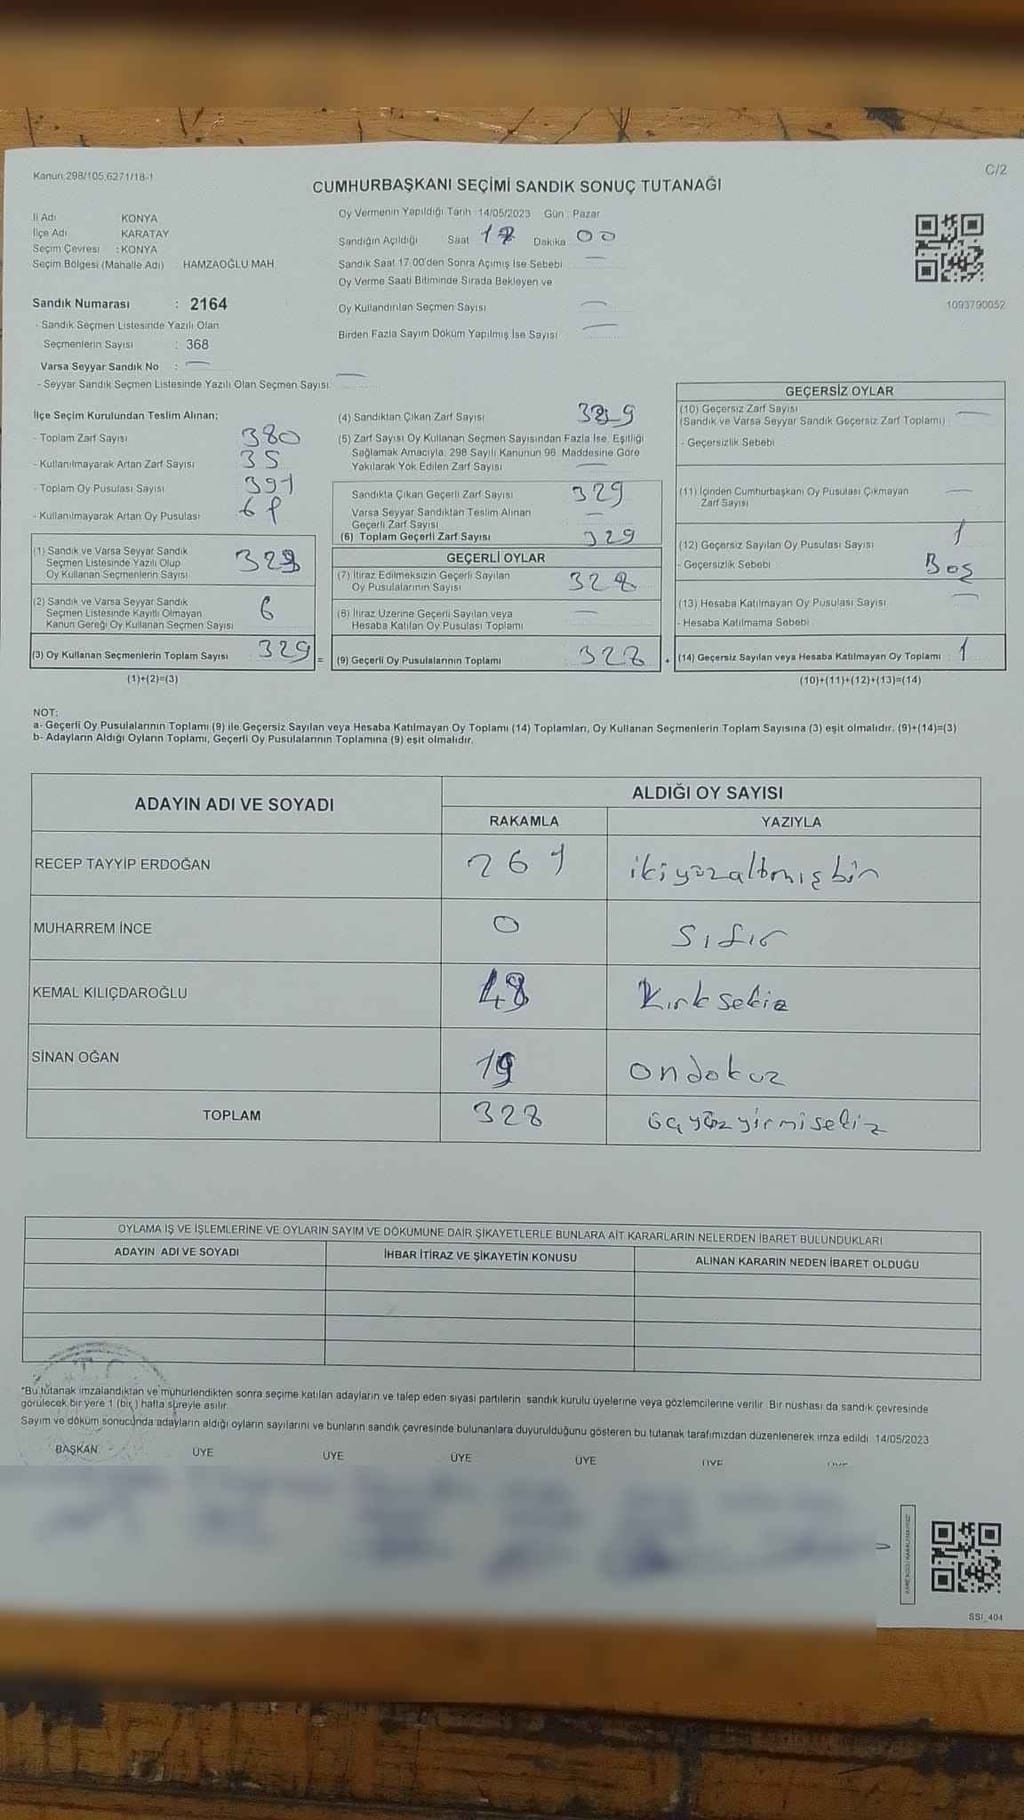 Kanun,298/105,6271/18-1
C/2
CUMHURBAŞKANI SEÇİMİ SANDIK SONUÇ TUTANAĞI
İl Adı KONYA
İlçe Adı KARATAY
Seçim Çevresi : KONYA
Seçim Bölgesi (Mahalle Adı) HAMZAOĞLU MAH
Oy Vermenin Yapıldığı Tarih 14/05/2023 Gün : Pazar
Sandığın Açıldığı Saat 17 Dakika 00
Sandık Saat 17:00'den Sonra Açımış İse Sebebi
Oy Verme Saati Bitiminde Sırada Bekleyen ve
Oy Kullandırılan Seçmen Sayısı
Birden Fazla Sayım Döküm Yapılmış İse Sayısı
1093790052
Sandık Numarası : 2164
- Sandık Seçmen Listesinde Yazılı Olan
Seçmenlerin Sayısı : 368
Varsa Seyyar Sandık No :
- Seyyar Sandık Seçmen Listesinde Yazılı Olan Seçmen Sayısı:
İlçe Seçim Kurulundan Teslim Alınan;
- Toplam Zarf Sayısı 380
- Kullanılmayarak Artan Zarf Sayısı 35
- Toplam Oy Pusulası Sayısı 391
- Kullanılmayarak Artan Oy Pusulası
(1) Sandık ve Varsa Seyyar Sandık
Seçmen Listesinde Yazılı Olup
Oy Kullanan Seçmenlerin Sayısı
(2) Sandık ve Varsa Seyyar Sandık
Seçmen Listesinde Kayıtlı Olmayan
Kanun Gereği Oy Kullanan Seçmen Sayısı 6
(3) Oy Kullanan Seçmenlerin Toplam Sayısı 329 =
(1)+(2)=(3)
(4) Sandıktan Çıkan Zarf Sayısı 329
(5) Zarf Sayısı Oy Kullanan Seçmen Sayısından Fazla İse, Eşitliği
Sağlamak Amacıyla, 298 Sayılı Kanunun 98. Maddesine Göre
Yakılarak Yok Edilen Zarf Sayısı
Sandıkta Çıkan Geçerli Zarf Sayısı 329
Varsa Seyyar Sandıktan Teslim Alınan
Geçerli Zarf Sayısı
(6) Toplam Geçerli Zarf Sayısı 329
GEÇERLİ OYLAR
(7) İtiraz Edilmeksizin Geçerli Sayılan
Oy Pusulalarının Sayısı 328
(8) İtiraz Üzerine Geçerli Sayılan veya
Hesaba Katılan Oy Pusulası Toplamı
(9) Geçerli Oy Pusulalarının Toplamı 328 +
GEÇERSİZ OYLAR
(10) Geçersiz Zarf Sayısı
(Sandık ve Varsa Seyyar Sandık Geçersiz Zarf Toplamı)
- Geçersizlik Sebebi
(11) İçinden Cumhurbaşkanı Oy Pusulası Çıkmayan
Zarf Sayısı
(12) Geçersiz Sayılan Oy Pusulası Sayısı 1
- Geçersizlik Sebebi Boş
(13) Hesaba Katılmayan Oy Pusulası Sayısı
- Hesaba Katılmama Sebebi
(14) Geçersiz Sayılan veya Hesaba Katılmayan Oy Toplamı : 1
(10)+(11)+(12)+(13)=(14)
NOT:
a- Geçerli Oy Pusulalarının Toplamı (9) ile Geçersiz Sayılan veya Hesaba Katılmayan Oy Toplamı (14) Toplamları, Oy Kullanan Seçmenlerin Toplam Sayısına (3) eşit olmalıdır. (9)+(14)=(3)
b- Adayların Aldığı Oyların Toplamı, Geçerli Oy Pusulalarının Toplamına (9) eşit olmalıdır.
ADAYIN ADI VE SOYADI ALDIĞI OY SAYISI
RAKAMLA YAZIYLA
RECEP TAYYİP ERDOĞAN 261 ikiyüzaltmışbir
MUHARREM İNCE 0 sıfır
KEMAL KILIÇDAROĞLU 48 Kırksekiz
SİNAN OĞAN 19 ondokuz
TOPLAM 328 üçyüzyirmisekiz
OYLAMA İŞ VE İŞLEMLERİNE VE OYLARIN SAYIM VE DÖKÜMÜNE DAİR ŞİKAYETLERLE BUNLARA AİT KARARLARIN NELERDEN İBARET BULUNDUKLARI
ADAYIN ADI VE SOYADI İHBAR İTİRAZ VE ŞİKAYETİN KONUSU ALINAN KARARIN NEDEN İBARET OLDUĞU
T.C.
*Bu tutanak imzalandıktan ve mühürlendikten sonra seçime katılan adayların ve talep eden siyasi partilerin sandık kurulu üyelerine veya gözlemcilerine verilir. Bir nüshası da sandık çevresinde
görülecek bir yere 1 (bir) hafta süreyle asılır.
Sayım ve döküm sonucunda adayların aldığı oyların sayılarını ve bunların sandık çevresinde bulunanlara duyurulduğunu gösteren bu tutanak tarafımızdan düzenlenerek imza edildi. 14/05/2023
BAŞKAN ÜYE ÜYE ÜYE ÜYE ÜYE ÜYE
SSI_404